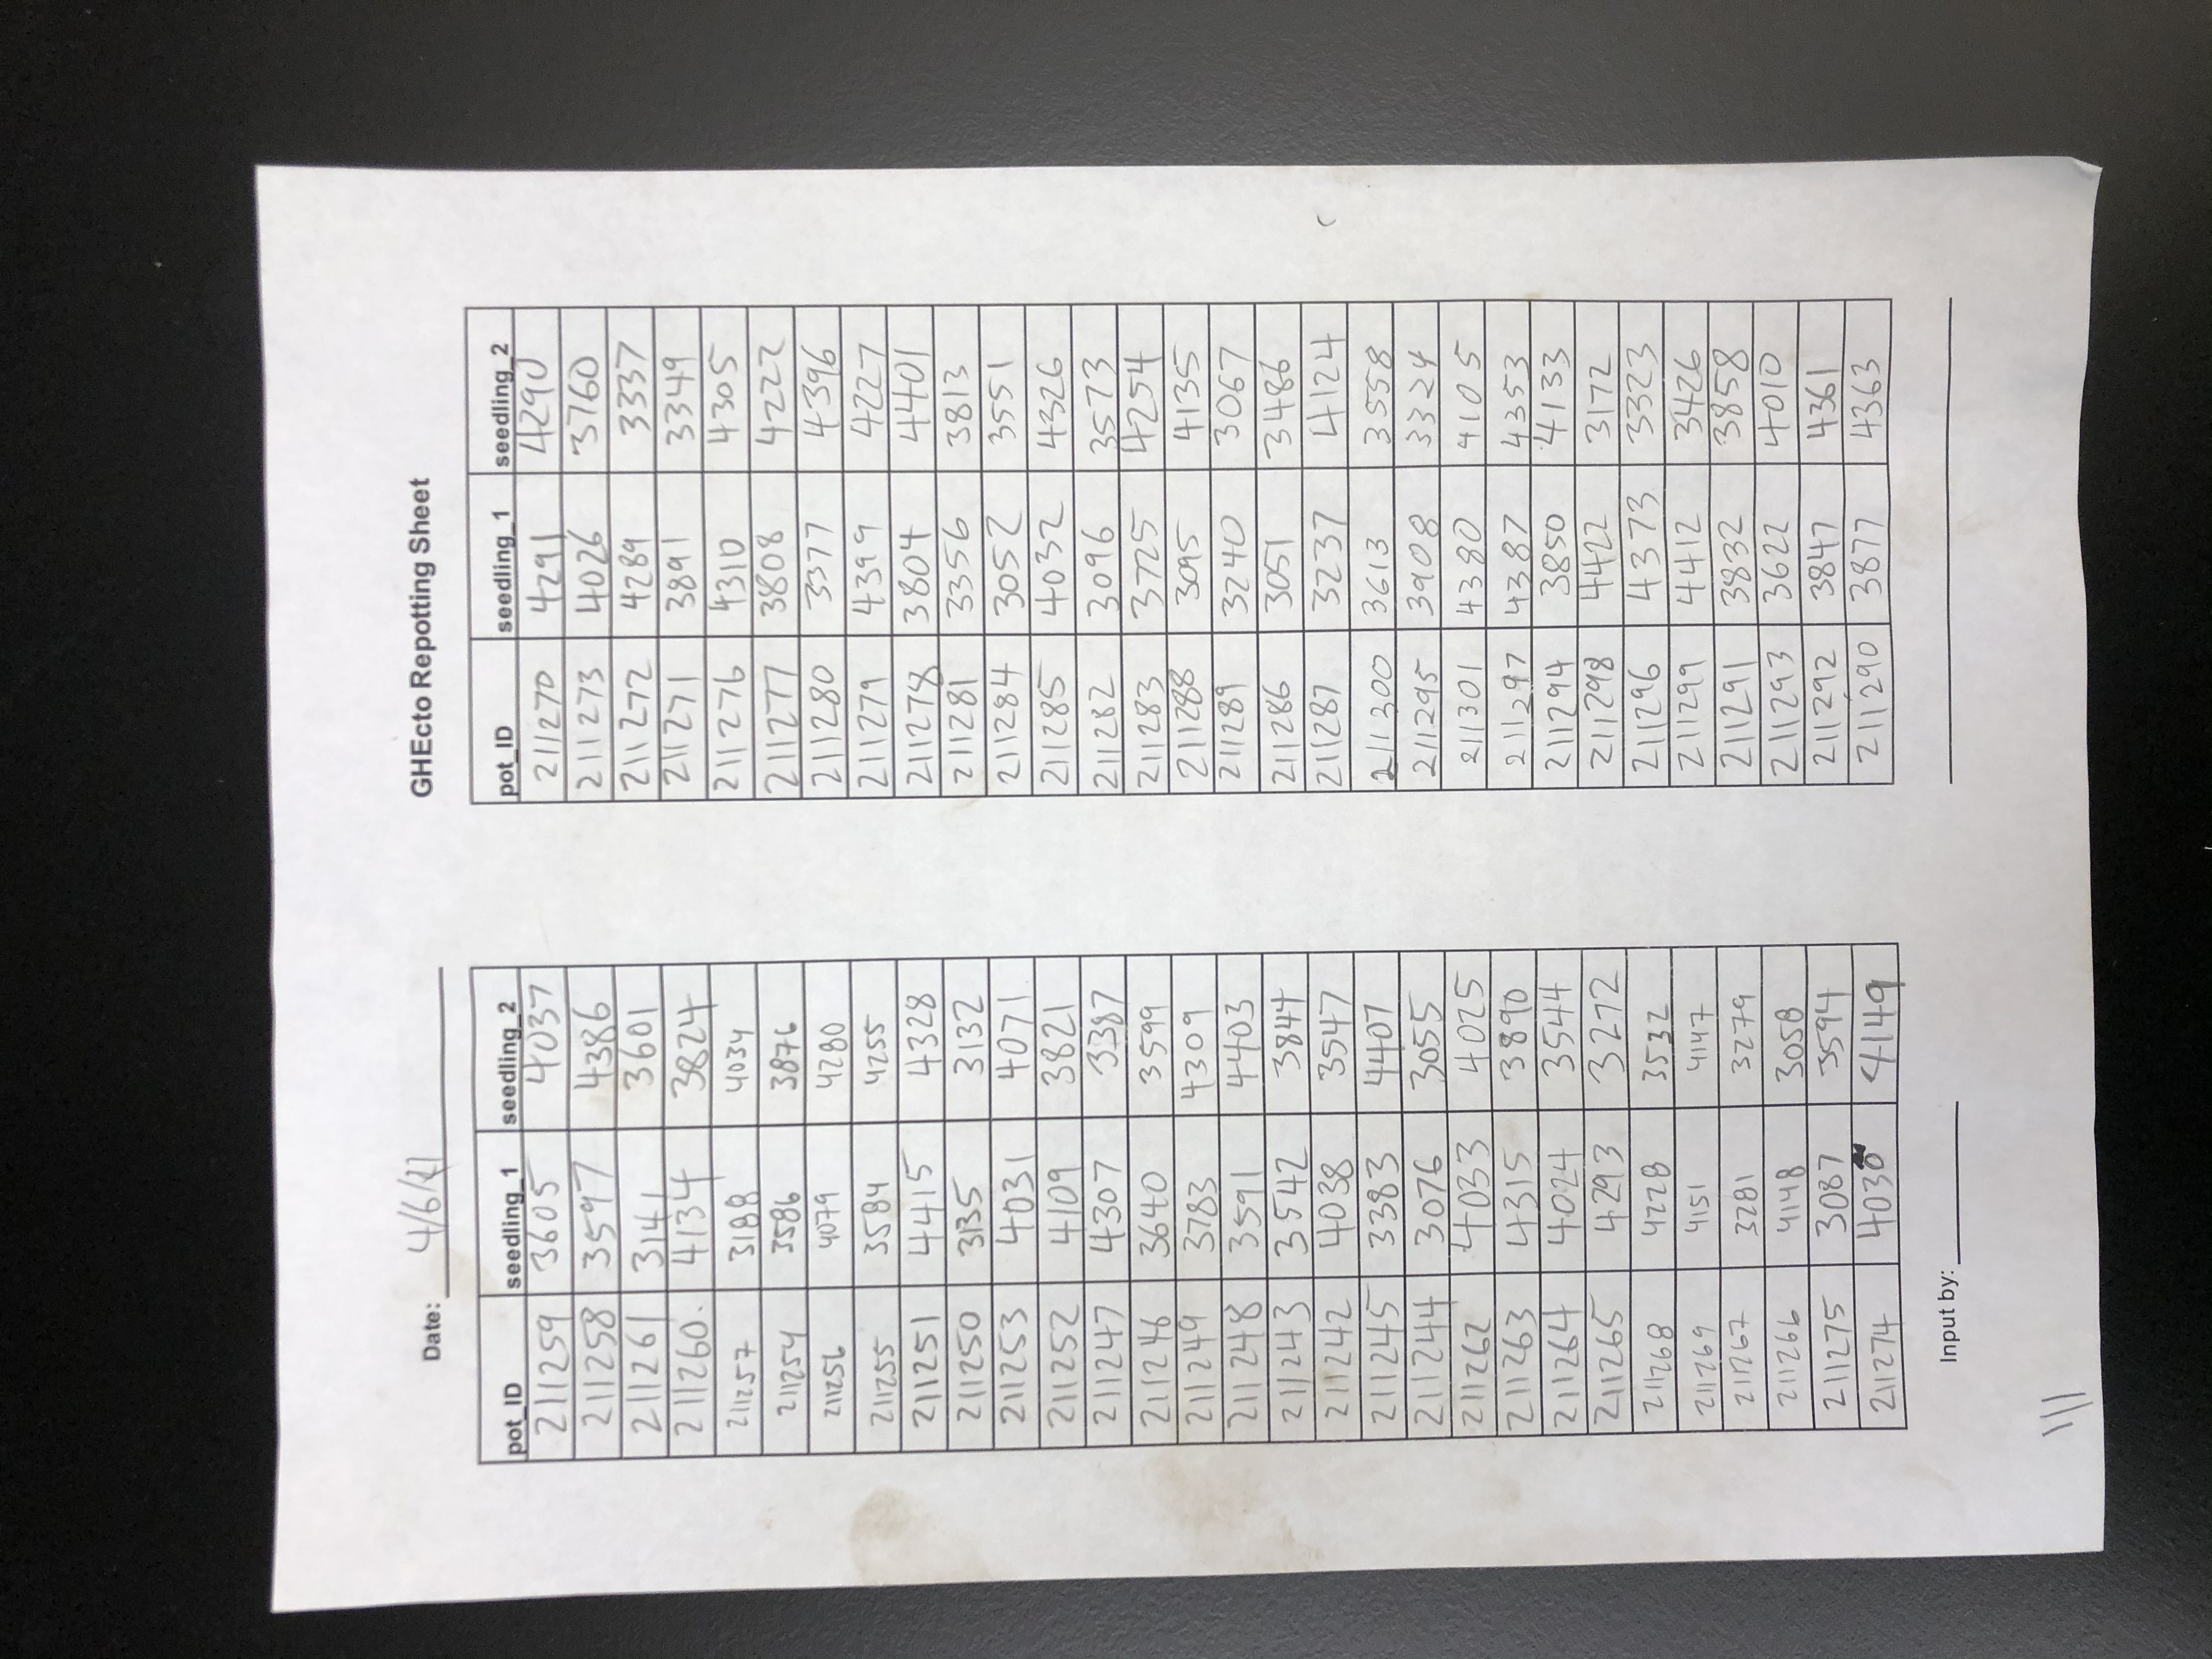 Date: 4/6/21
pot_ID seedling_1 seedling_2
211259 3605 4037
211258 3597 4386
211261 3141 3601
211260. 4134 3824
211257 3188 4034
211254 3586 3876
211256 4079 4280
211255 3584 4255
211251 4415 4328
211250 3135 3132
211253 4031 4071
211252 4109 3821
211247 4307 3387
211246 3640 3599
211249 3783 4309
211248 3591 4403
211243 3542 3844
211242 4038 3547
211245 3383 4407
211244 3076 3055
211262 4033 4025
211263 4315 3890
211264 4024 3544
211265 4293 3272
211268 4228 3532
211269 4151 4147
211267 3281 3279
211266 4148 3058
211275 3087 3594
211274 4030 4149
Input by:
GHEcto Repotting Sheet
pot_ID seedling_1 seedling_2
211270 4291 4290
211273 4026 3760
211272 4289 3337
211271 3891 3349
211276 4310 4305
211277 3808 4222
211280 3377 4396
211279 4399 4227
211278 3804 4401
211281 3356 3813
211284 3052 3551
211285 4032 4326
211282 3096 3573
211283 3725 4254
211288 3095 4135
211289 3240 3067
211286 3051 3486
211287 3237 4124
211300 3613 3558
211295 3908 3324
211301 4380 4105
211297 4387 4353
211294 3850 4133
211298 4422 3172
211296 4373 3323
211299 4412 3426
211291 3832 3858
211293 3622 4010
211292 3847 4361
211290 3877 4363